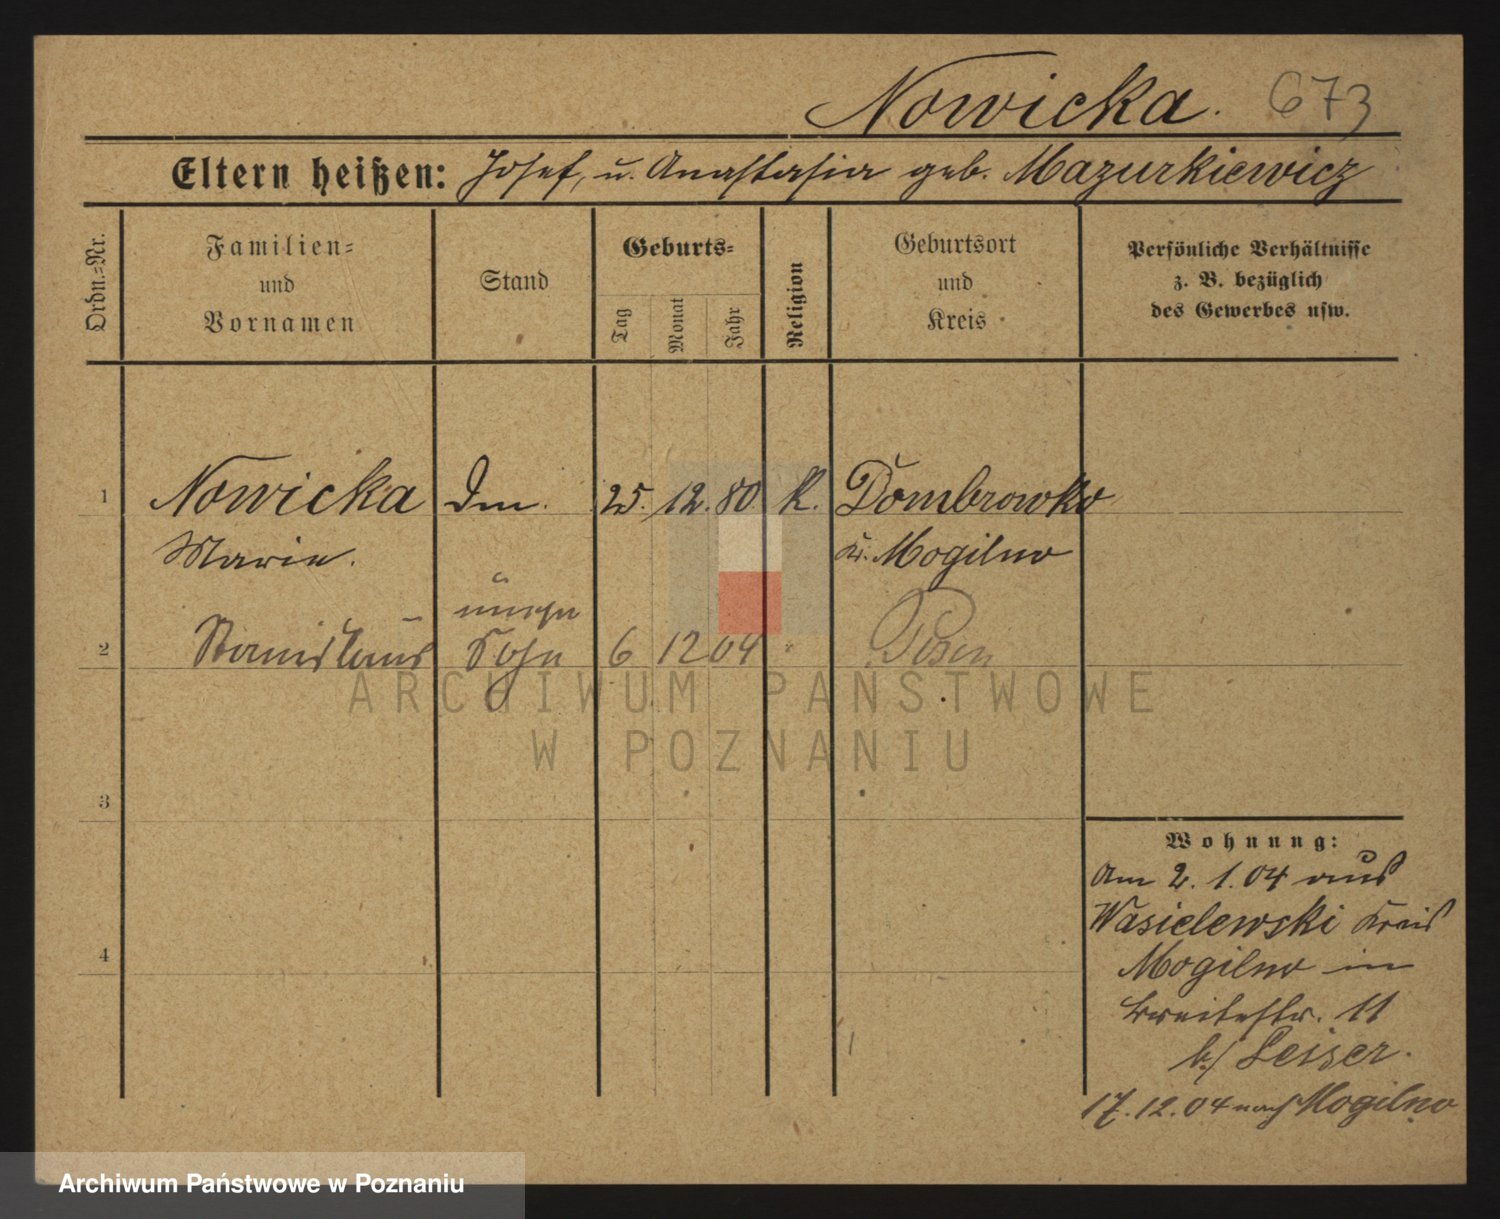 Nowicka. 673
Eltern heißen: Josef, u. Anastasia geb. Mazurkiewicz
Ordn.=Nr.
Familien=
und
Vornamen
Stand
Geburts=
Tag
Monat
Jahr
Religion
Geburtsort
und
Kreis
Persönliche Verhältnisse
z. B. bezüglich
des Gewerbes usw.
1 Nowicka 25. 12. 80 K. Dombrowko
Marie. Kr. Mogilno
unehe
2 Stanislaus Sohn 6 12 04 Posen
3
4
Wohnung:
Am 2. 1. 04 aus
Wasielewski Kreis
Mogilno in
Breitestr. 11
b/ Leiser.
17. 12. 04 nach Mogilno
ARCHIWUM PAŃSTWOWE
W POZNANIU
Archiwum Państwowe w Poznaniu